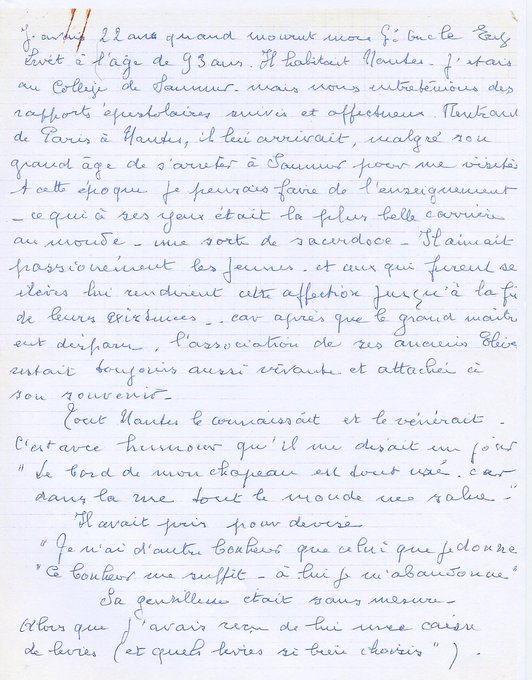 J'avais 22 ans quand mourut mon Gd Oncle
Livet à l'âge de 93 ans. Il habitait Nantes. J'étais
au Collège de Saumur. mais nous entretenions des
rapports épistolaires suivis et affectueux. Rentrant
de Paris à Nantes, il lui arrivait, malgré son
grand âge de s'arrêter à Saumur pour me visiter
A cette époque je pensais faire de l'enseignement
_ ce qui à ses yeux était la plus belle carrière
au monde _ une sorte de sacerdoce _ Il aimait
passionément les jeunes. et ceux qui furent se
élèves lui rendirent cette affection jusqu'à la fi
de leurs existences _. car après que le grand maitr
eut disparu, l'association de ses anciens Elève
restait toujours aussi vivante et attachée à
son souvenir _
Tout Nantes le connaissait et le vénérait.
C'est avec humour qu'il me disait un jour
" Le bord de mon chapeau est tout usé. car
dans la rue tout le monde me salue _"
Il avait pris pour devise
" Je n'ai d'autre bonheur que celui que je donne
" Ce bonheur me suffit _ à lui je m'abandonne "
Sa gentillesse était sans mesure _
Alors que j'avais reçu de lui une caisse
de livres (et quels livres si bien choisis ").